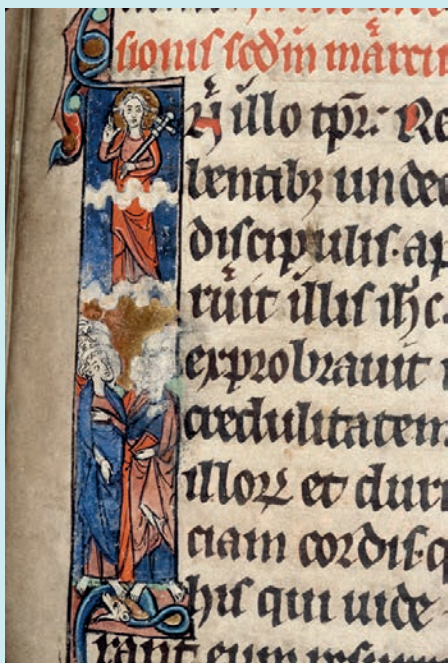 sionis scd'm marcu
N illo tpr: Re
bentibz undec
discipulis. ap
ruit illis ih'c
exprobrauit
credulitatem
illoꝝ et duri
ciam cordis. q
his qui uide
rant eum